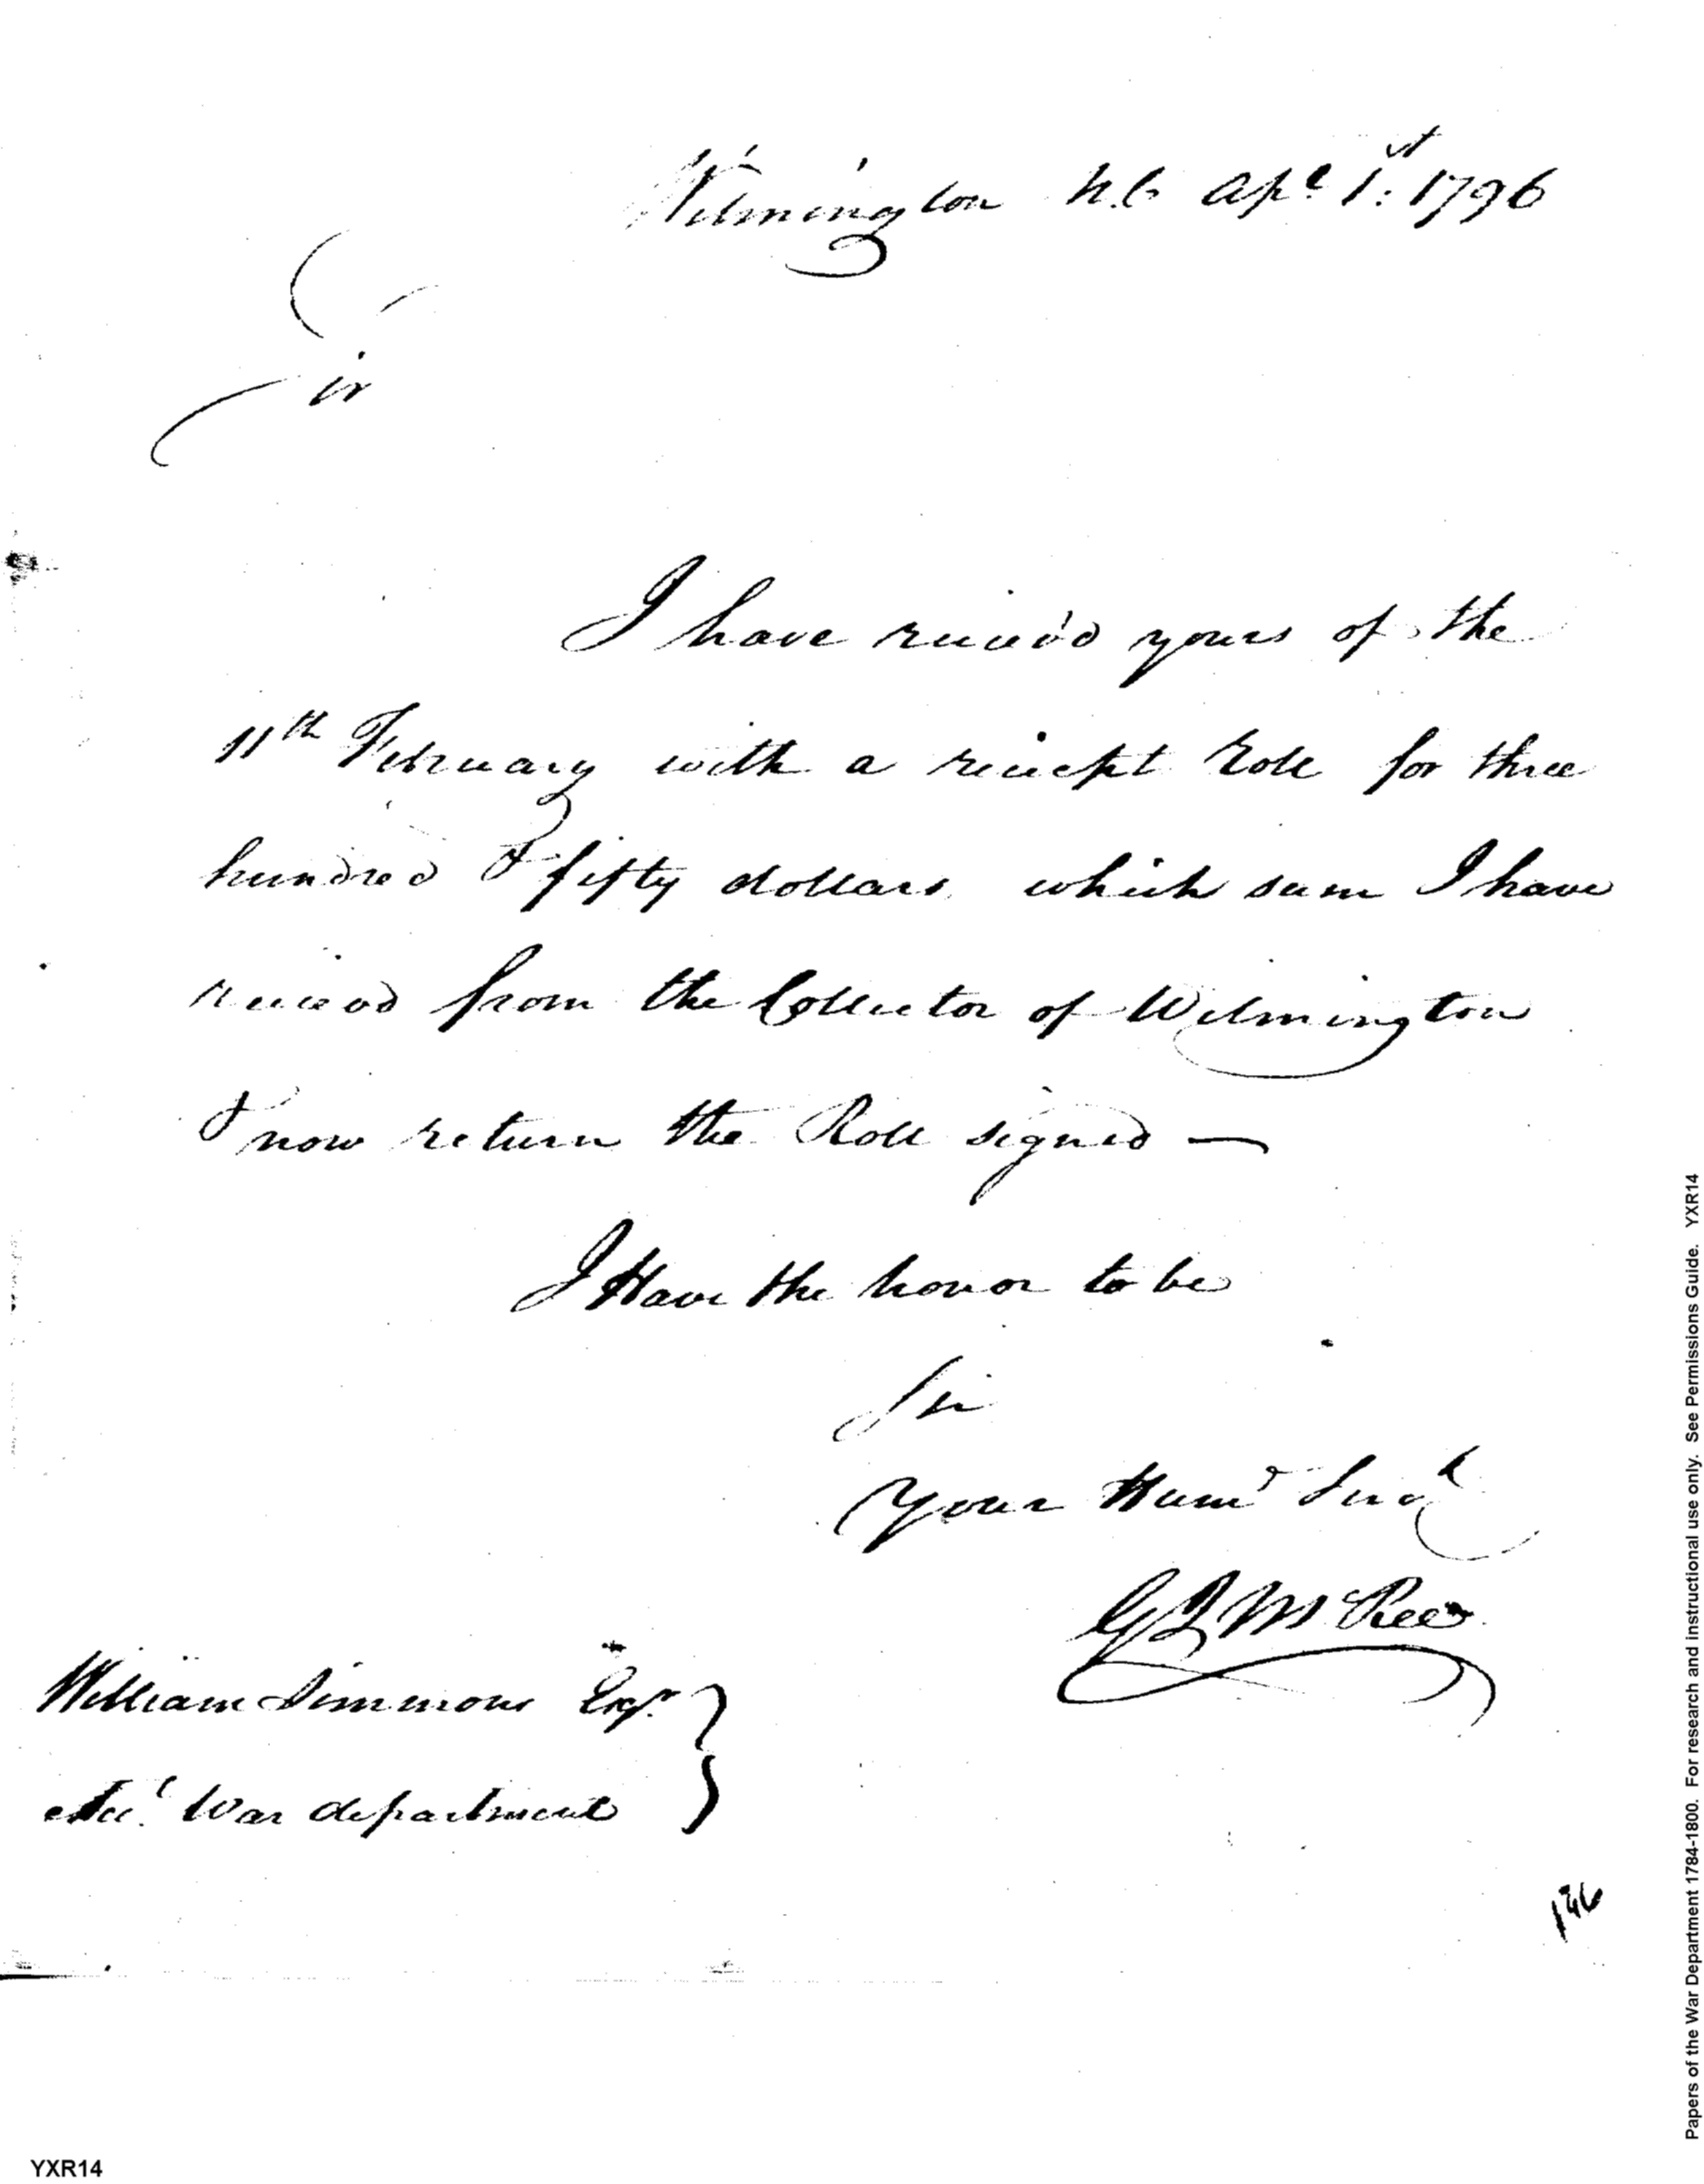 Wilmington N.C Apl 1st: 1796
Sir
I have reciev'd yours of the
11th February with a reciept Role for three
hundred & fifty dollars, which sum I have
recievd from the Collector of Wilmington
& now return the Roll signed —
I Have the honor to be
Sir
Your Hume Servt
G J McRee
William Simmons Esqr.
Acct. War department
146
YXR14
Papers of the War Department 1784-1800. For research and instructional use only. See Permissions Guide. YXR14